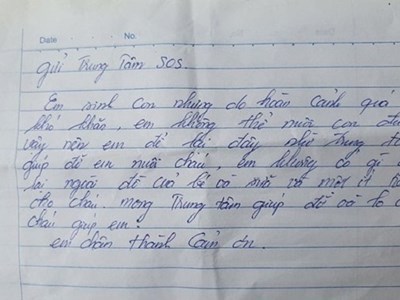 Date No.
Gửi Trung Tâm SOS.
Em sinh con nhưng do hoàn cảnh quá
khó khăn, em không thể nuôi con
vậy nên em để lại đây nhờ Trung
giúp đỡ em nuôi cháu, em không có gì
lại ngoài đồ của bé và sữa và một ít
cho cháu. mong Trung tâm giúp đỡ và
cháu giúp em!
em chân thành cảm ơn.